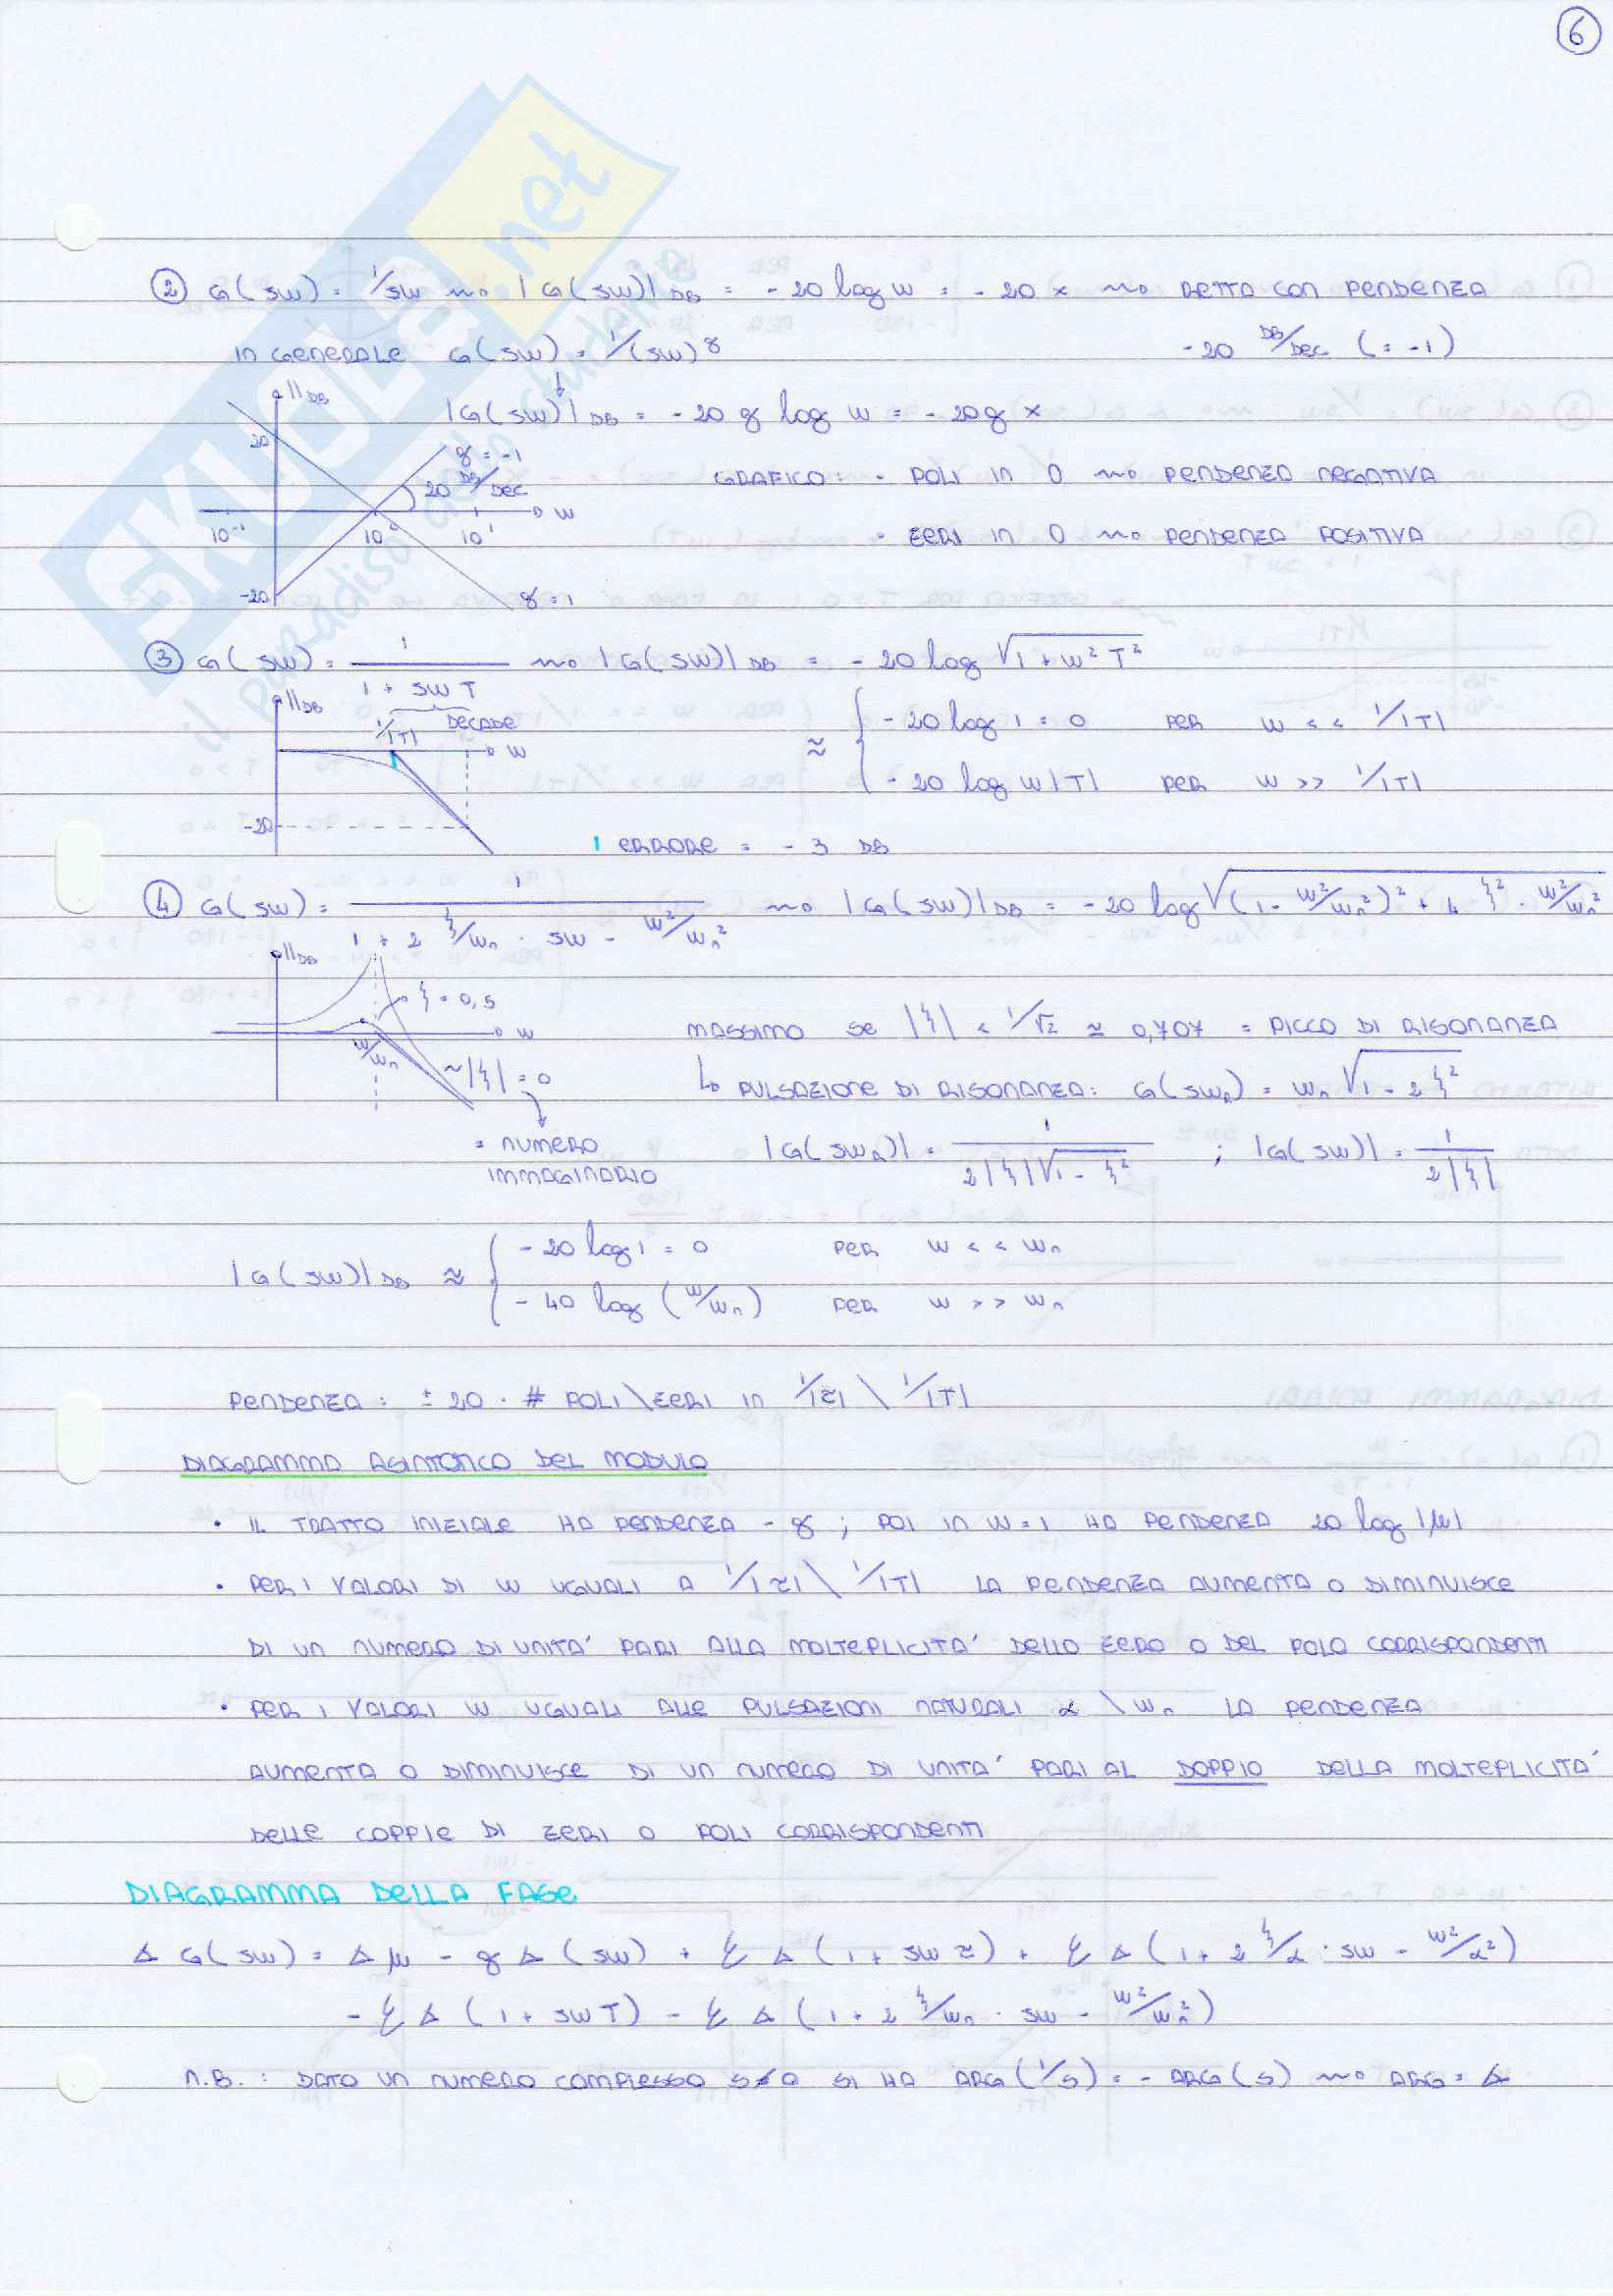 6
② G(jω) = 1/jω ⇝ |G(jω)|DB = -20 log ω = -20 x ⇝ RETTA CON PENDENZA
-20 DB/DEC (= -1)
IN GENERALE G(jω) = 1/(jω)^g
|G(jω)|DB = -20 g log ω = -20 g x
GRAFICO: • POLI IN 0 ⇝ PENDENZA NEGATIVA
• ZERI IN 0 ⇝ PENDENZA POSITIVA
||DB
20
g = -1
20 DB/DEC
ω
10⁻¹ 10⁰ 10¹
-20
g = 1
③ G(jω) = 1/(1 + jωT) ⇝ |G(jω)|DB = -20 log √(1 + ω²T²)
≈ { -20 log 1 = 0 PER ω << 1/|T|
-20 log ω|T| PER ω >> 1/|T|
||DB
1/|T| DECADE
ω
-20
| ERRORE = -3 DB
④ G(jω) = 1/(1 + 2 ξ/ωn · jω - ω²/ωn²) ⇝ |G(jω)|DB = -20 log √((1 - ω²/ωn²)² + 4 ξ² · ω²/ωn²)
||DB
ξ = 0,5
ω
ω/ωn
|ξ| = 0
= NUMERO
IMMAGINARIO
MASSIMO SE |ξ| < 1/√2 ≃ 0,707 = PICCO DI RISONANZA
↳ PULSAZIONE DI RISONANZA: G(jωR) = ωn √(1 - 2ξ²)
|G(jωR)| = 1/(2|ξ|√(1 - ξ²)) ; |G(jω)| = 1/(2|ξ|)
|G(jω)|DB ≈ { -20 log 1 = 0 PER ω << ωn
-40 log (ω/ωn) PER ω >> ωn
PENDENZA: ± 20 · # POLI\ZERI IN 1/|τ| \ 1/|T|
DIAGRAMMA ASINTOTICO DEL MODULO
• IL TRATTO INIZIALE HA PENDENZA -g ; POI IN ω = 1 HA PENDENZA 20 log |μ|
• PER I VALORI DI ω UGUALI A 1/|τ| \ 1/|T| LA PENDENZA AUMENTA O DIMINUISCE
DI UN NUMERO DI UNITA' PARI ALLA MOLTEPLICITA' DELLO ZERO O DEL POLO CORRISPONDENTI
• PER I VALORI ω UGUALI ALLE PULSAZIONI NATURALI α \ ωn LA PENDENZA
AUMENTA O DIMINUISCE DI UN NUMERO DI UNITA' PARI AL DOPPIO DELLA MOLTEPLICITA'
DELLE COPPIE DI ZERI O POLI CORRISPONDENTI
DIAGRAMMA DELLA FASE
∡ G(jω) = ∡ μ - g ∡ (jω) + Σ ∡ (1 + jωτ) + Σ ∡ (1 + 2 ξ/α · jω - ω²/α²)
- Σ ∡ (1 + jωT) - Σ ∡ (1 + 2 ξ/ωn · jω - ω²/ωn²)
N.B.: DATO UN NUMERO COMPLESSO s≠0 SI HA ARG(1/s) = - ARG(s) ⇝ ARG = ∡
SKUOLA.net
il paradiso dello studente